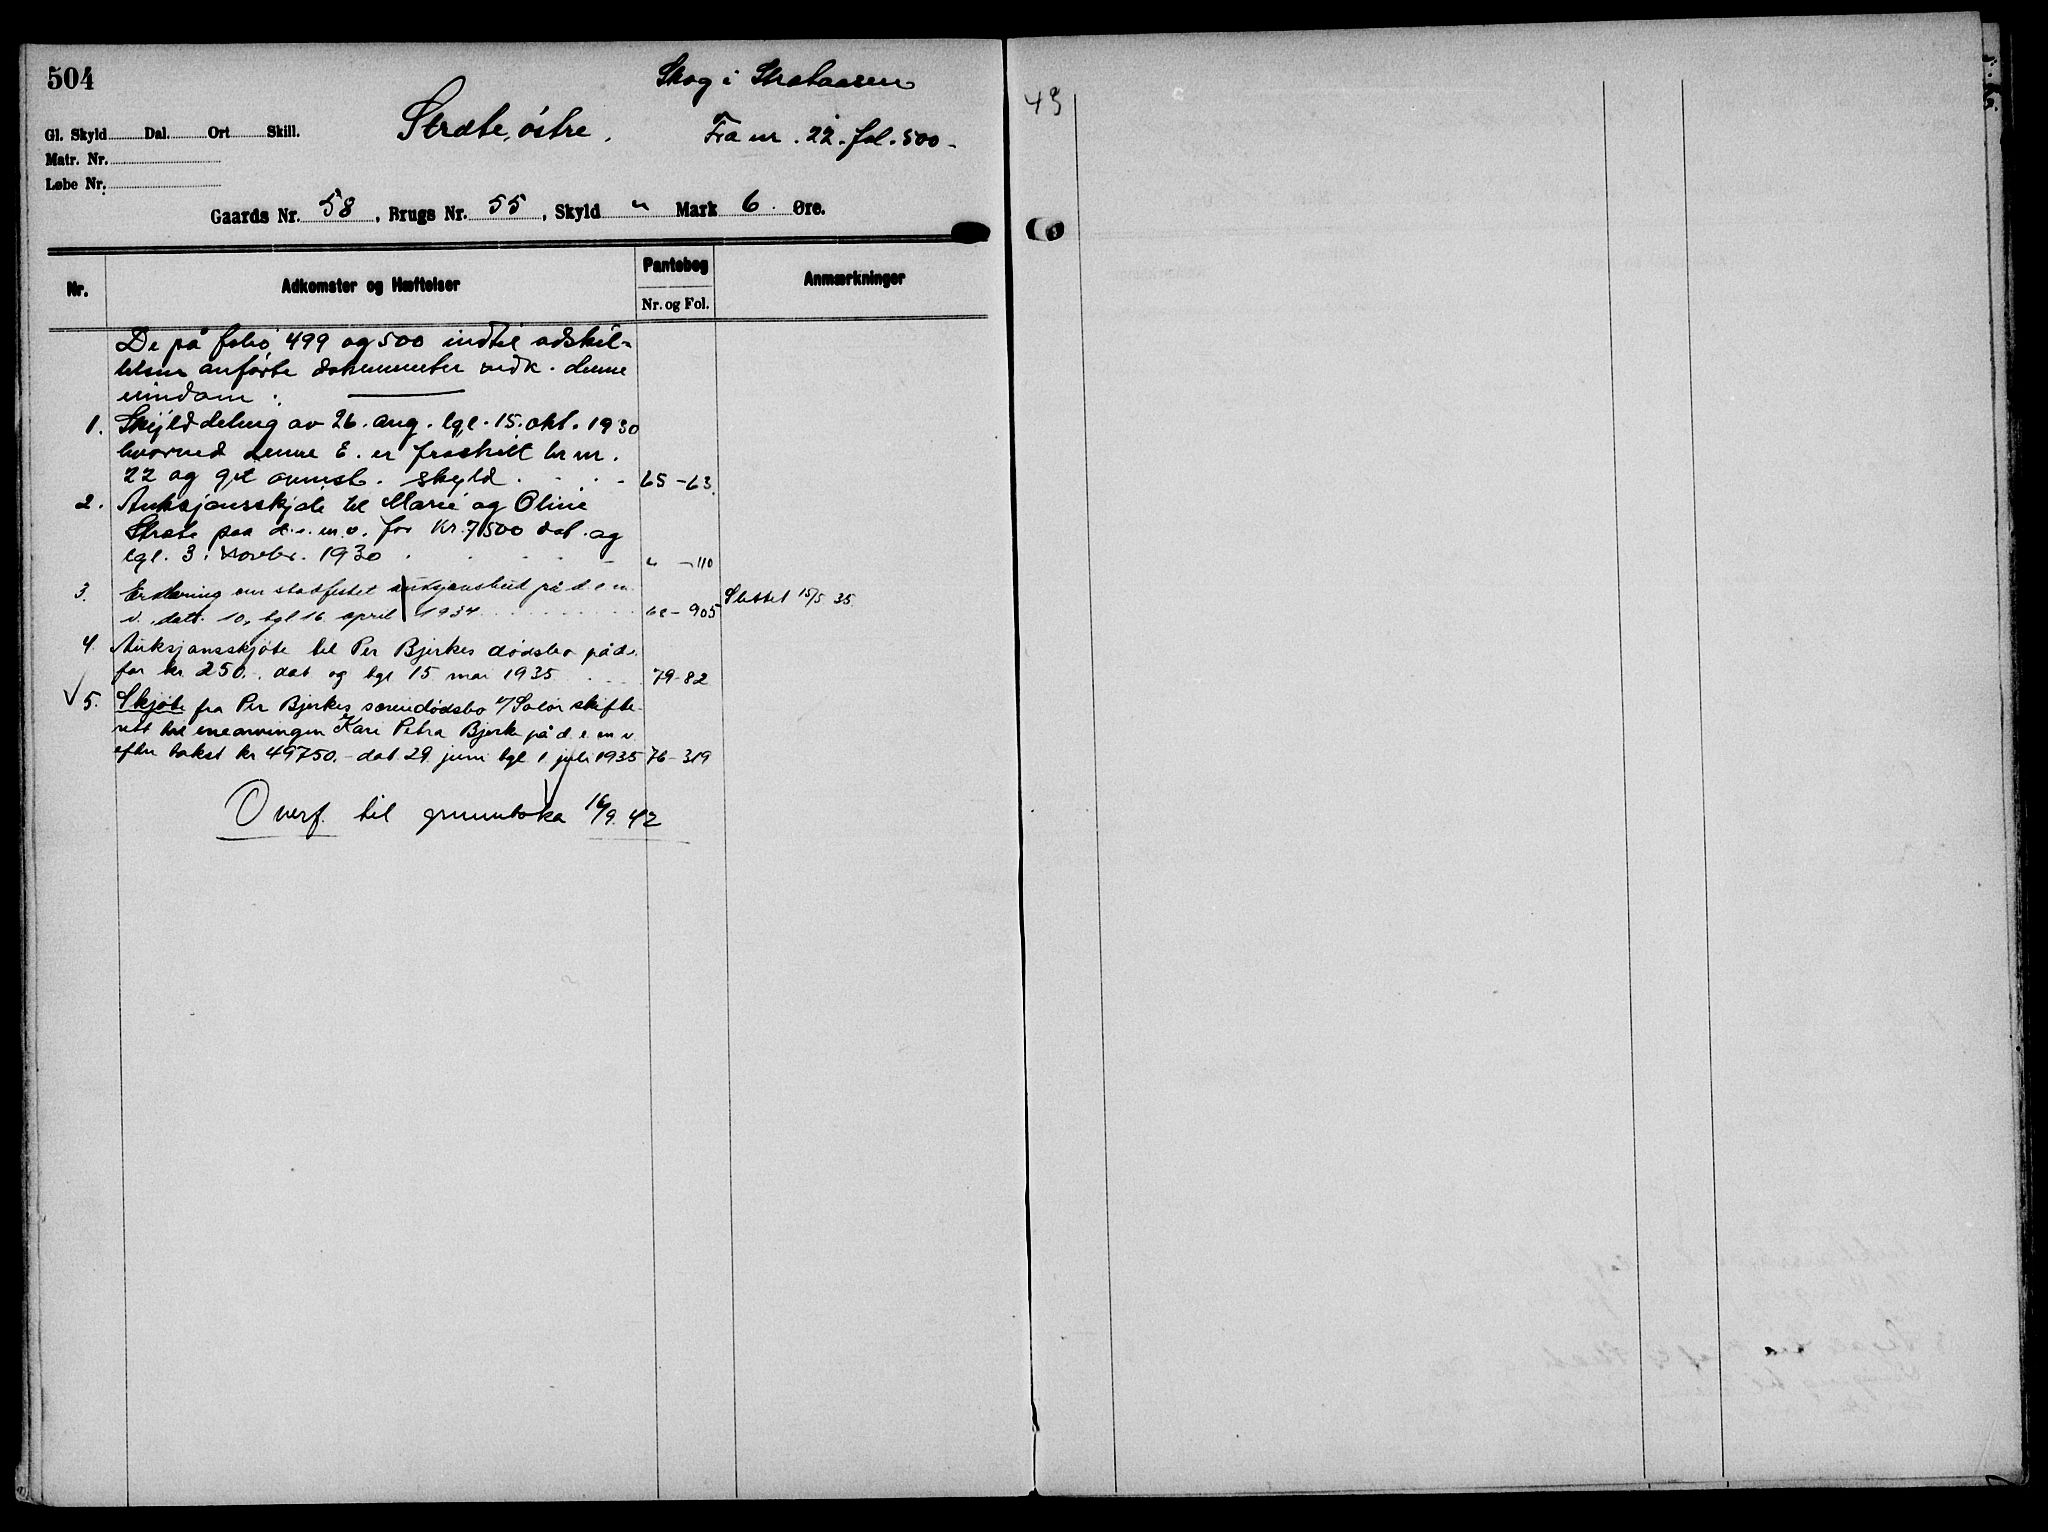 504
Skog i Stræteaasen
Stræte, östre.
Fra nr. 22. fol. 500-
Gl. Skyld Dal. Ort Skill.
Matr. Nr.
Løbe Nr.
Gaards Nr. 58, Brugs Nr. 55, Skyld " Mark 6 Øre.
Nr. Adkomster og Hæftelser Pantebog Nr. og Fol. Anmærkninger
De på folio 499 og 500 indtil adskil-
lelsen anførte dokumenter vedk. denne
eiendom:
1. Skylddeling av 26. aug. tgl. 15. okt. 1930
hvorved denne E. er fraskilt br nr.
22 og git ovennst. skyld. 65-63.
2. Auksjonsskjøte til Marie og Oline
Stræte paa d. e. m. v. for Kr. 7500 dat. og
tgl. 3. novbr. 1930 " -110
3. Erklæring om stadfestet auksjonsbud på d. e. m.
v., dat. 10, tgl 16 april 1934 68-905 Slettet 15/5 35.
4. Auksjonsskjøte til Per Bjerkes dødsbo på d.
for kr 250.-. dat og tgl 15 mai 1935 79-82
5. Skjøte fra Per Bjerkes særeiedødsbo v/Solør skifte-
rett til enearvingen Kari Petra Bjerke på d. e. m v.
efter takst kr 49750.- dat. 29. juni tgl 1. juli 1935 76-319
Overf. til grunnboka 16/9. 42
49